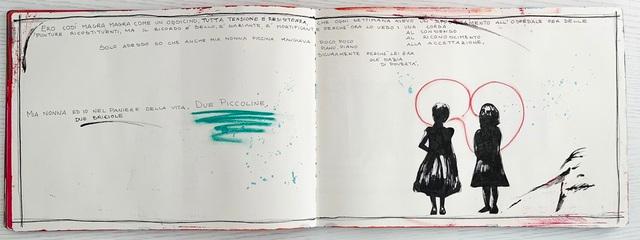 ERO COSÌ MAGRA MAGRA COME UN OSSICINO, TUTTA TENSIONE E RESISTENZA,
CHE OGNI SETTIMANA AVEVO UN APPUNTAMENTO ALL'OSPEDALE PER DELLE
PUNTURE RICOSTITUENTI, MA IL RICORDO È
E PERCHÉ ORA LO VEDO: UNA CORDA
AL CONTRARIO
SOLO ADESSO SO CHE ANCHE MIA NONNA PICCINA MANGIAVA
POCO POCO AL RICONOSCIMENTO
PIANO PIANO ALLA ACCETTAZIONE,
SICURAMENTE PERCHÉ LEI ERA
DI POVERTÀ.
MIA NONNA ED IO NEL PANIERE DELLA VITA. DUE PICCOLINE
DUE BRICIOLE